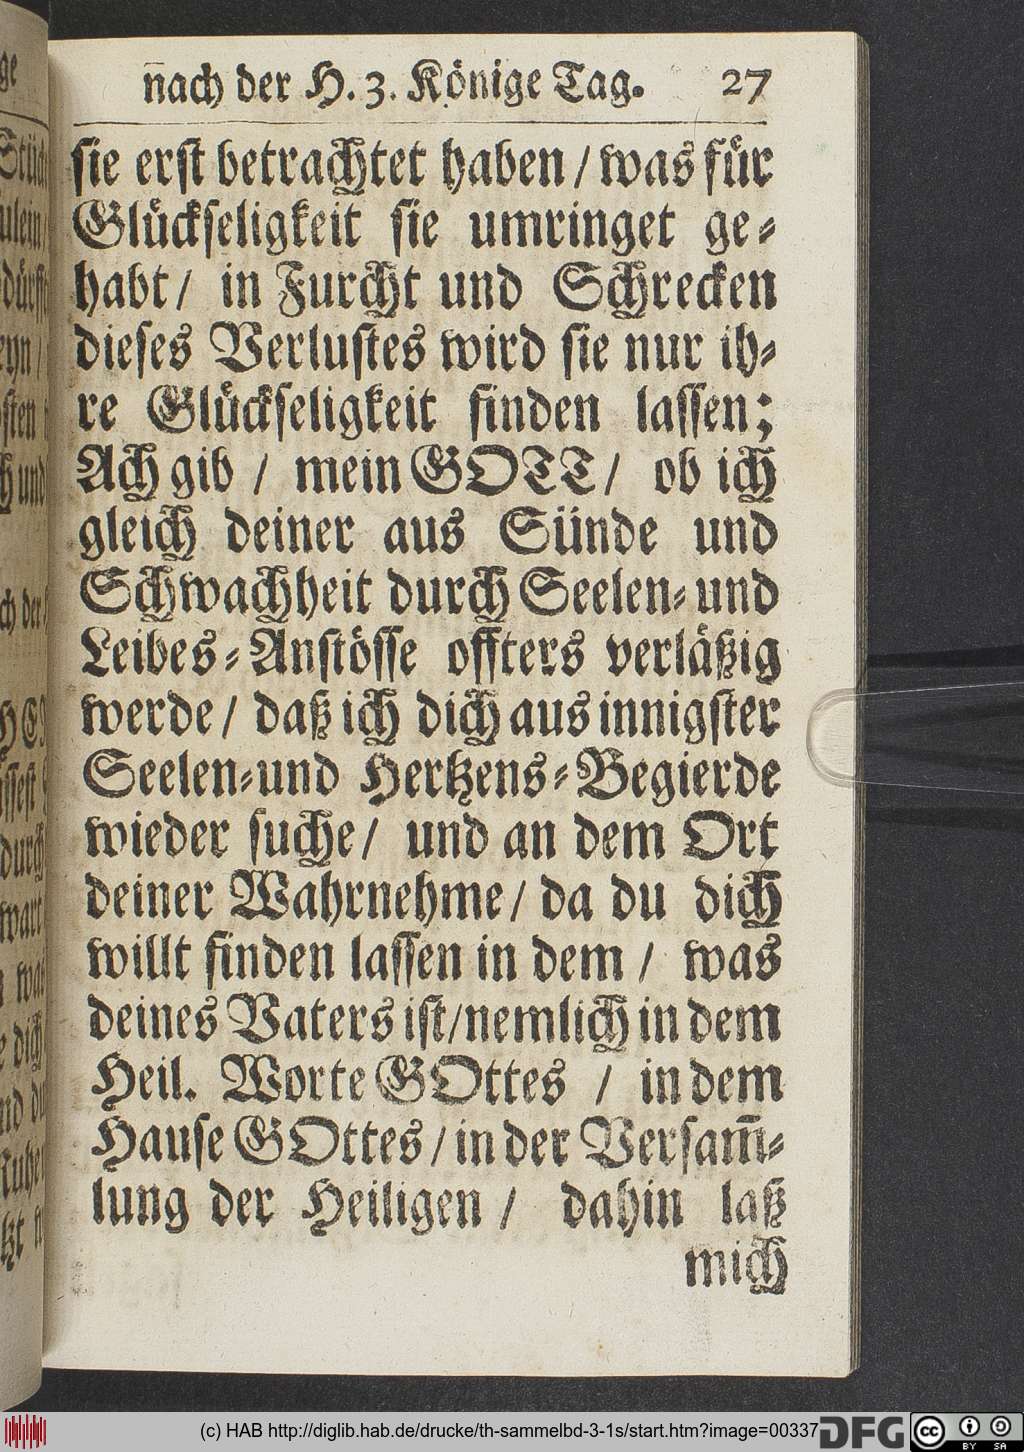 nach der H. 3. Könige Tag. 27
sie erst betrachtet haben / was für
Glückseligkeit sie umringet ge-
habt / in Furcht und Schrecken
dieses Verlustes wird sie nur ih-
re Glückseligkeit finden lassen;
Ach gib / mein GOTT / ob ich
gleich deiner aus Sünde und
Schwachheit durch Seelen- und
Leibes-Anstösse offters verläßig
werde / daß ich dich aus innigster
Seelen- und Hertzens-Begierde
wieder suche / und an dem Ort
deiner Wahrnehme / da du dich
willt finden lassen in dem / was
deines Vaters ist / nemlich in dem
Heil. Worte GOttes / in dem
Hause GOttes / in der Versam̃-
lung der Heiligen / dahin laß
mich
(c) HAB http://diglib.hab.de/drucke/th-sammelbd-3-1s/start.htm?image=00337
DFG
cc BY SA